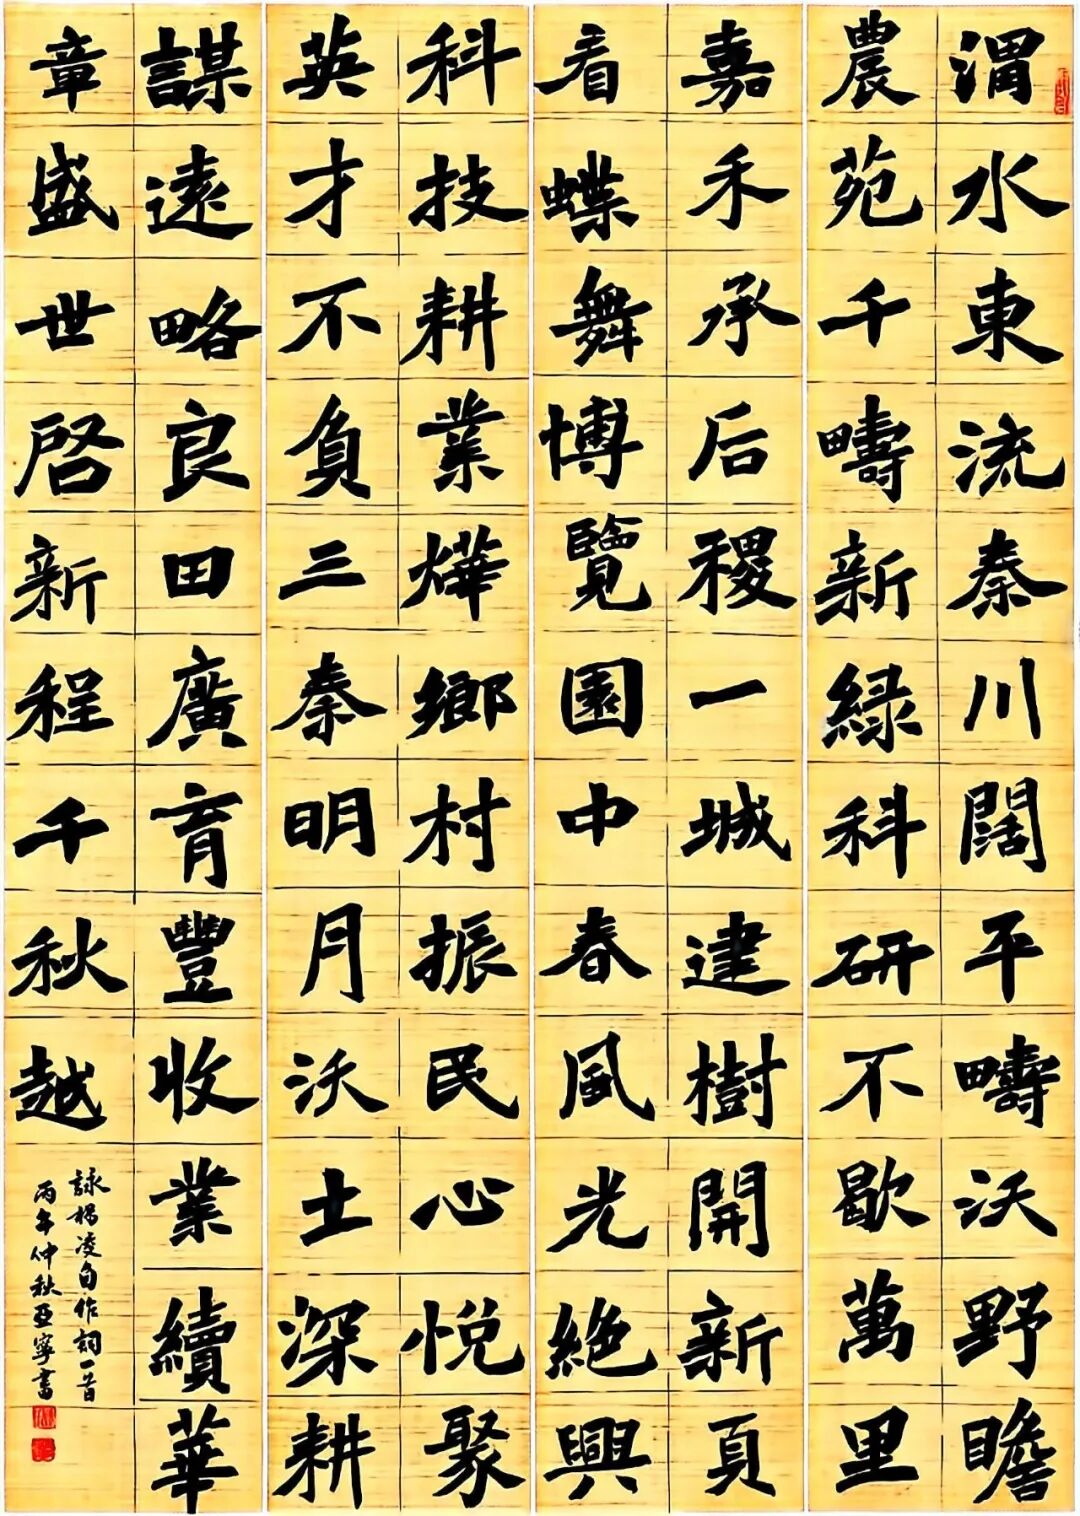 渭水東流秦川闊平疇沃野瞻
農苑千疇新緑科研不歇萬里
嘉禾承后稷一城建樹開新頁
看蝶舞博覽園中春風光絶興
科技耕業燁鄉村振民心悦聚
英才不負三秦明月沃土深耕
謀遠略良田廣育豐收業續華
章盛世啓新程千秋越
詠楊凌自作詞一首
丙午仲秋亞寧書